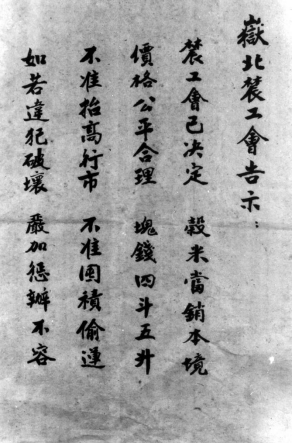 嶽北農工會告示：
農工會已決定 穀米當銷本境
價格公平合理 塊錢四斗五升
不准抬高行市 不准囤積偷運
如若違犯破壞 嚴加懲辦不容